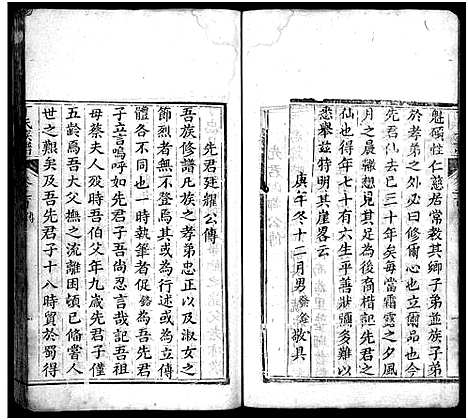 魁碩性仁慈居常教其鄉子弟並族子弟
於孝弟之外必曰修爾心上天爾品也今示
先君仙去已三十年矣每當霜露之夕風
月之晨緬想其足為後裔楷記想先君之
仙也得年七十有六生平善狀彌多難以
悉舉茲特明其崖畧云
庚午冬十二月男發金敬具
先君廷耀公傳
吾族修譜凡族之孝弟忠正以及淑女之
節烈者無不登其或為行述或為立傳
體各不同也一時執筆者促銘為吾先君
子立言嗚呼如先君子吾尚忍言哉記吾祖
母蔡夫人歿時吾伯父年九歲先君子年
五齡爲吾大父撫之流離困頓已備嘗人
世之艱矣吾先君子十八時貿於蜀得